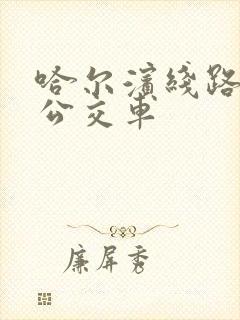 哈尔滨线路
公交车
廉屏秀